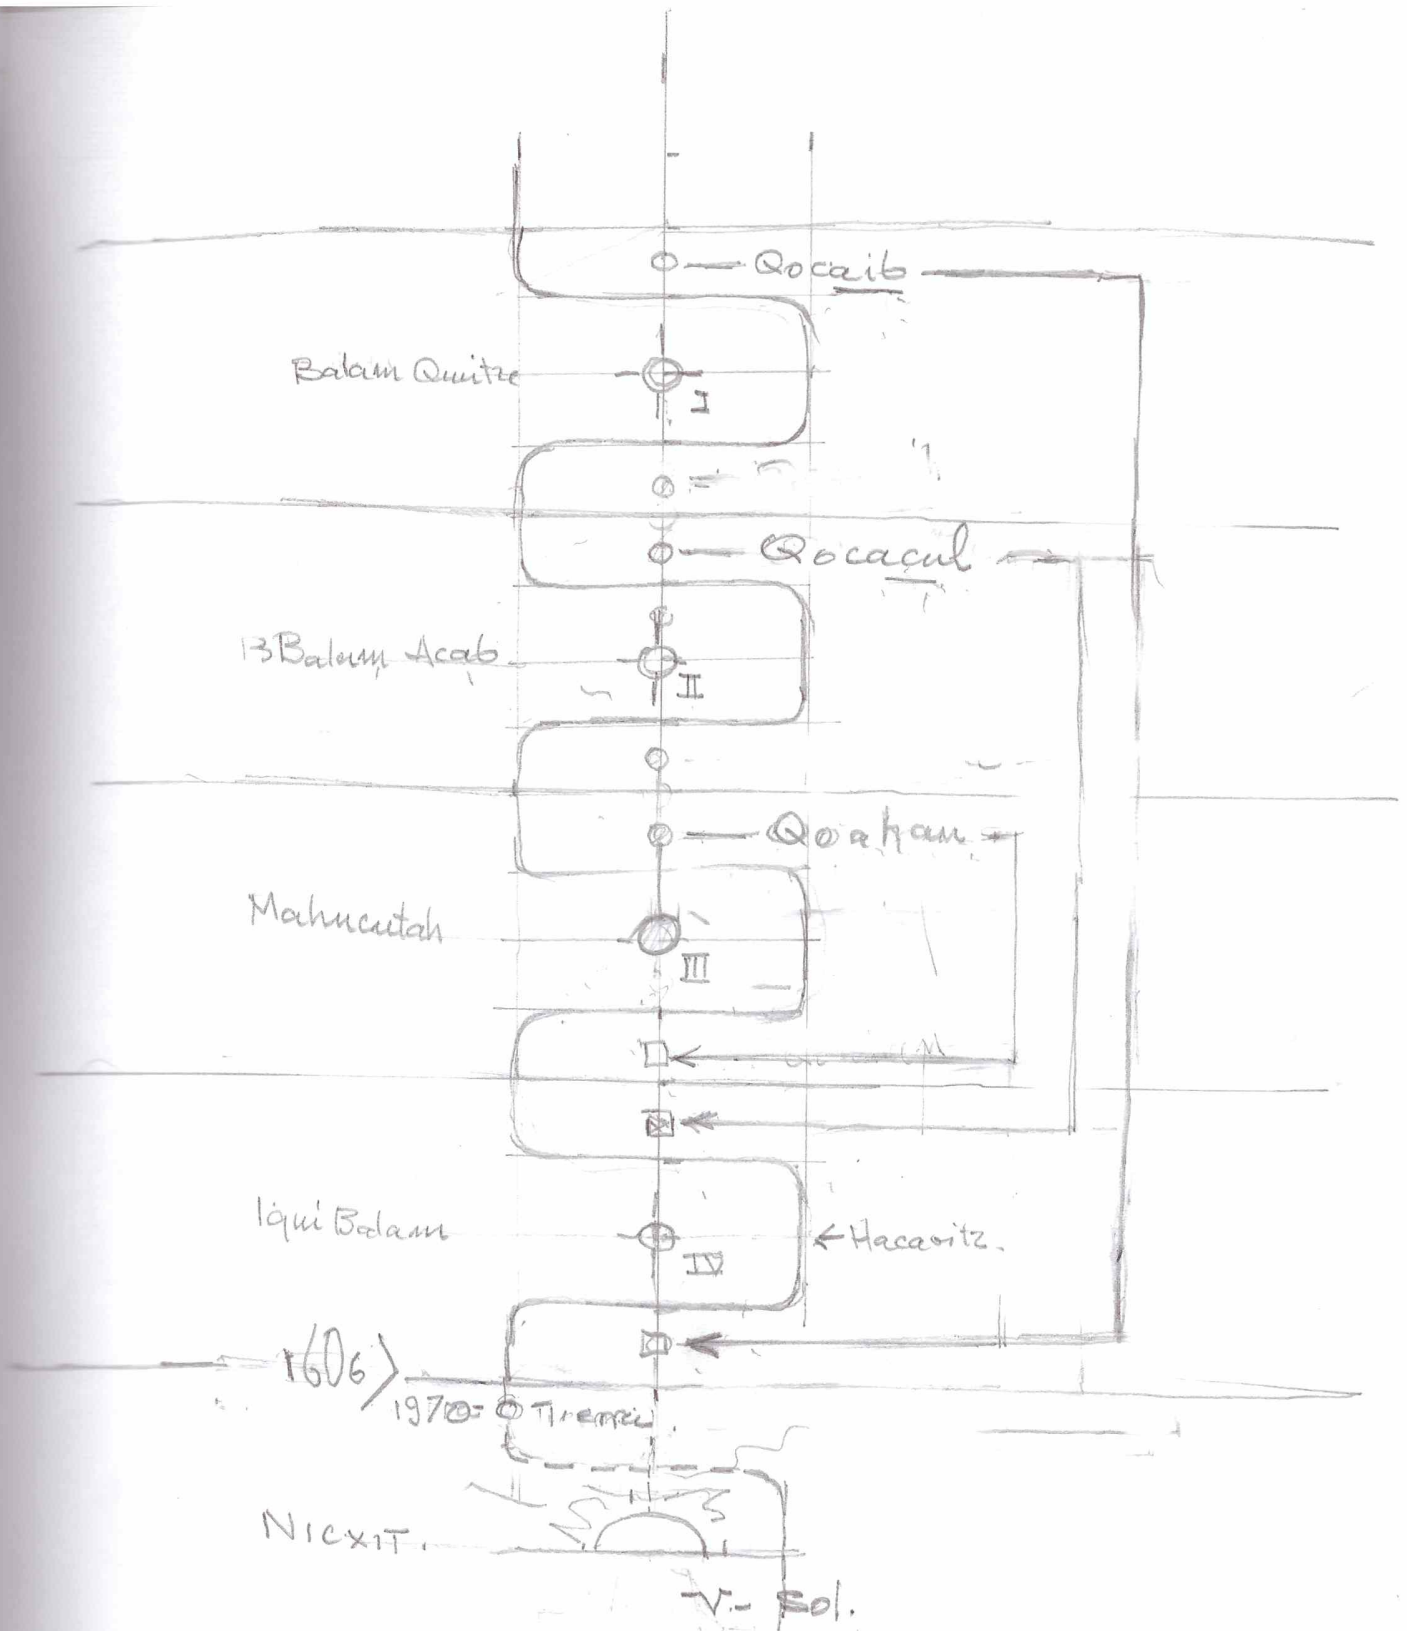 Qocaib
Balam Quitze
I
Qocaçul
Balam Acab
II
Qoahau
Mahucutah
III
Iqui Balam
IV
← Hacavitz.
1606
1970=
NICXIT.
-V.- Sol.